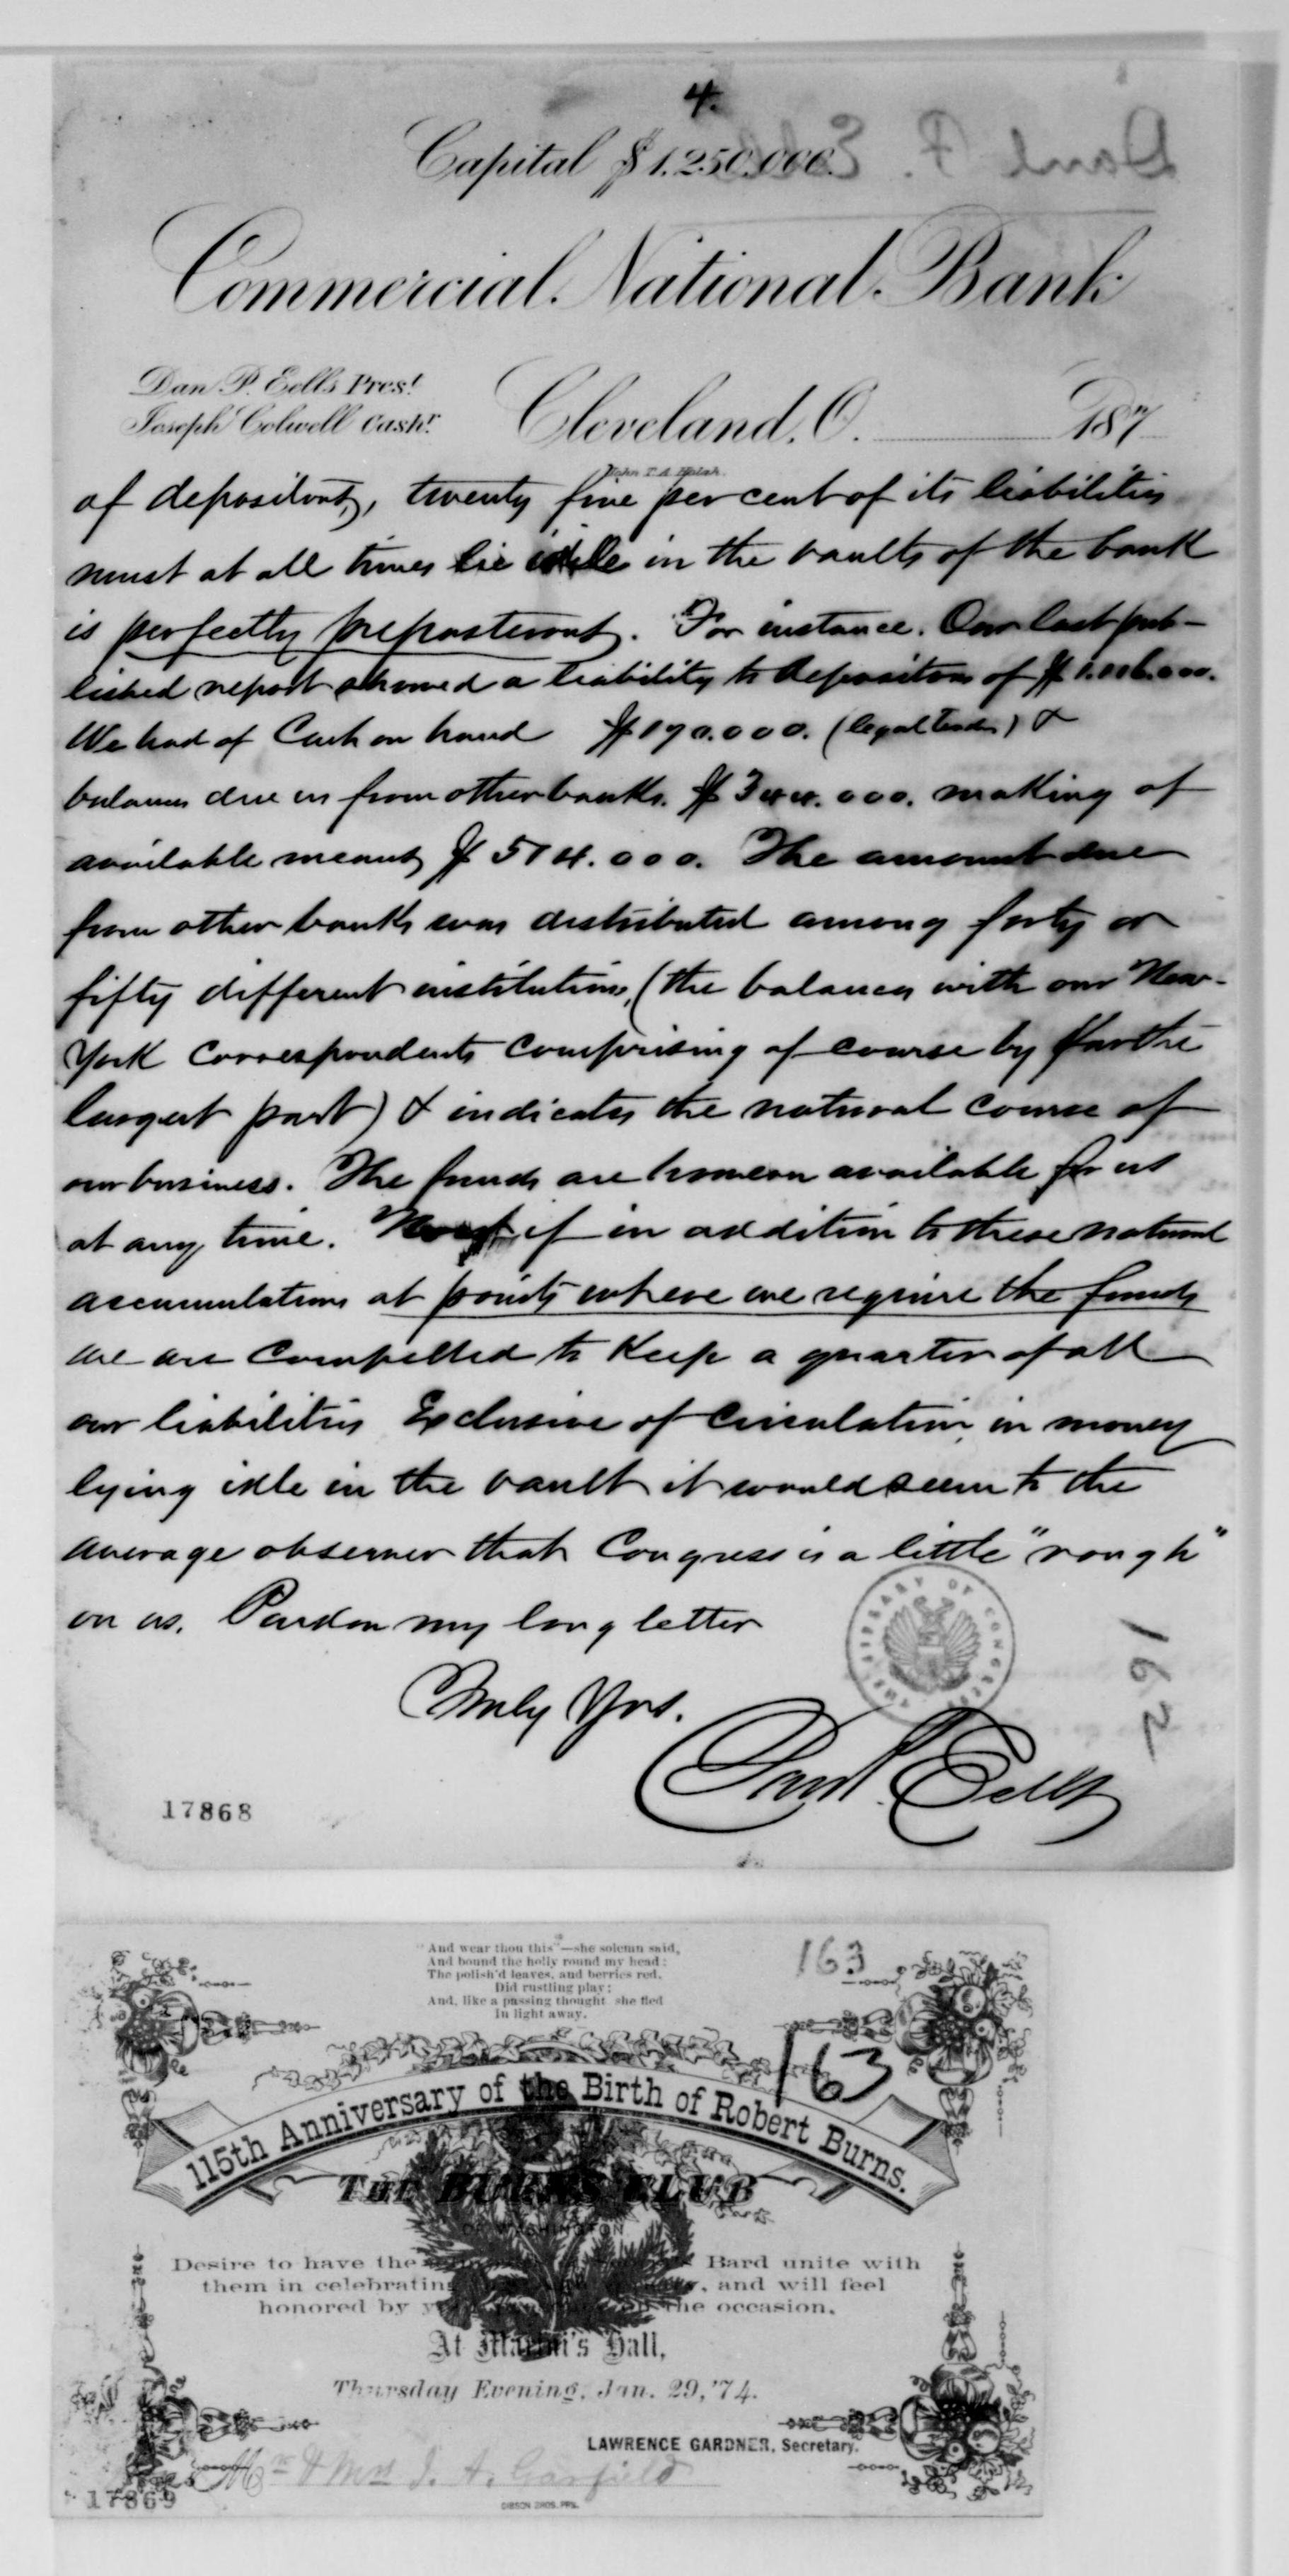 4.
Capital $1.250.000.
Commercial National Bank
Dan P. Eells Prest.
Joseph Colwell Cashr.
Cleveland, O. 187
of depositors, twenty five per cent of its liabilities
must at all times lie idle in the vaults of the bank
is perfectly preposterous. For instance. Our last pub-
lished report showed a liability to depositors of $
We had of Cash on hand $190.000. (legal tender) &
balances due us from other banks. $ 000. making of
available means $ 514.000. The amount due
from other banks was distributed among forty or
fifty different institutions, (the balances with our New-
York Correspondents comprising of course by far the
largest part) & indicates the natural course of
our business. The funds are however available for us
at any time. Now if in addition to these natural
accumulations at points where we require the funds
we are compelled to keep a quarter of all
our liabilities Exclusive of Circulation, in money
lying idle in the vault it would seem to the
average observer that Congress is a little "rough"
on us. Pardon my long letter
Truly Yrs.
Danl P. Eells
LIBRARY OF CONGRESS
162
17868
"And wear thou this"—she solemn said,
And bound the holly round my head:
The polish'd leaves, and berries red,
Did rustling play;
And, like a passing thought she fled
In light away.
163
163
115th Anniversary of the Birth of Robert Burns.
THE BURNS CLUB
OF WASHINGTON
Desire to have the Bard unite with
them in celebrating , and will feel
honored by the occasion.
At Marini's Hall,
Thursday Evening, Jan. 29, '74.
LAWRENCE GARDNER, Secretary.
Mr & Mrs J. A. Garfield
17869
GIBSON BROS. PRS.